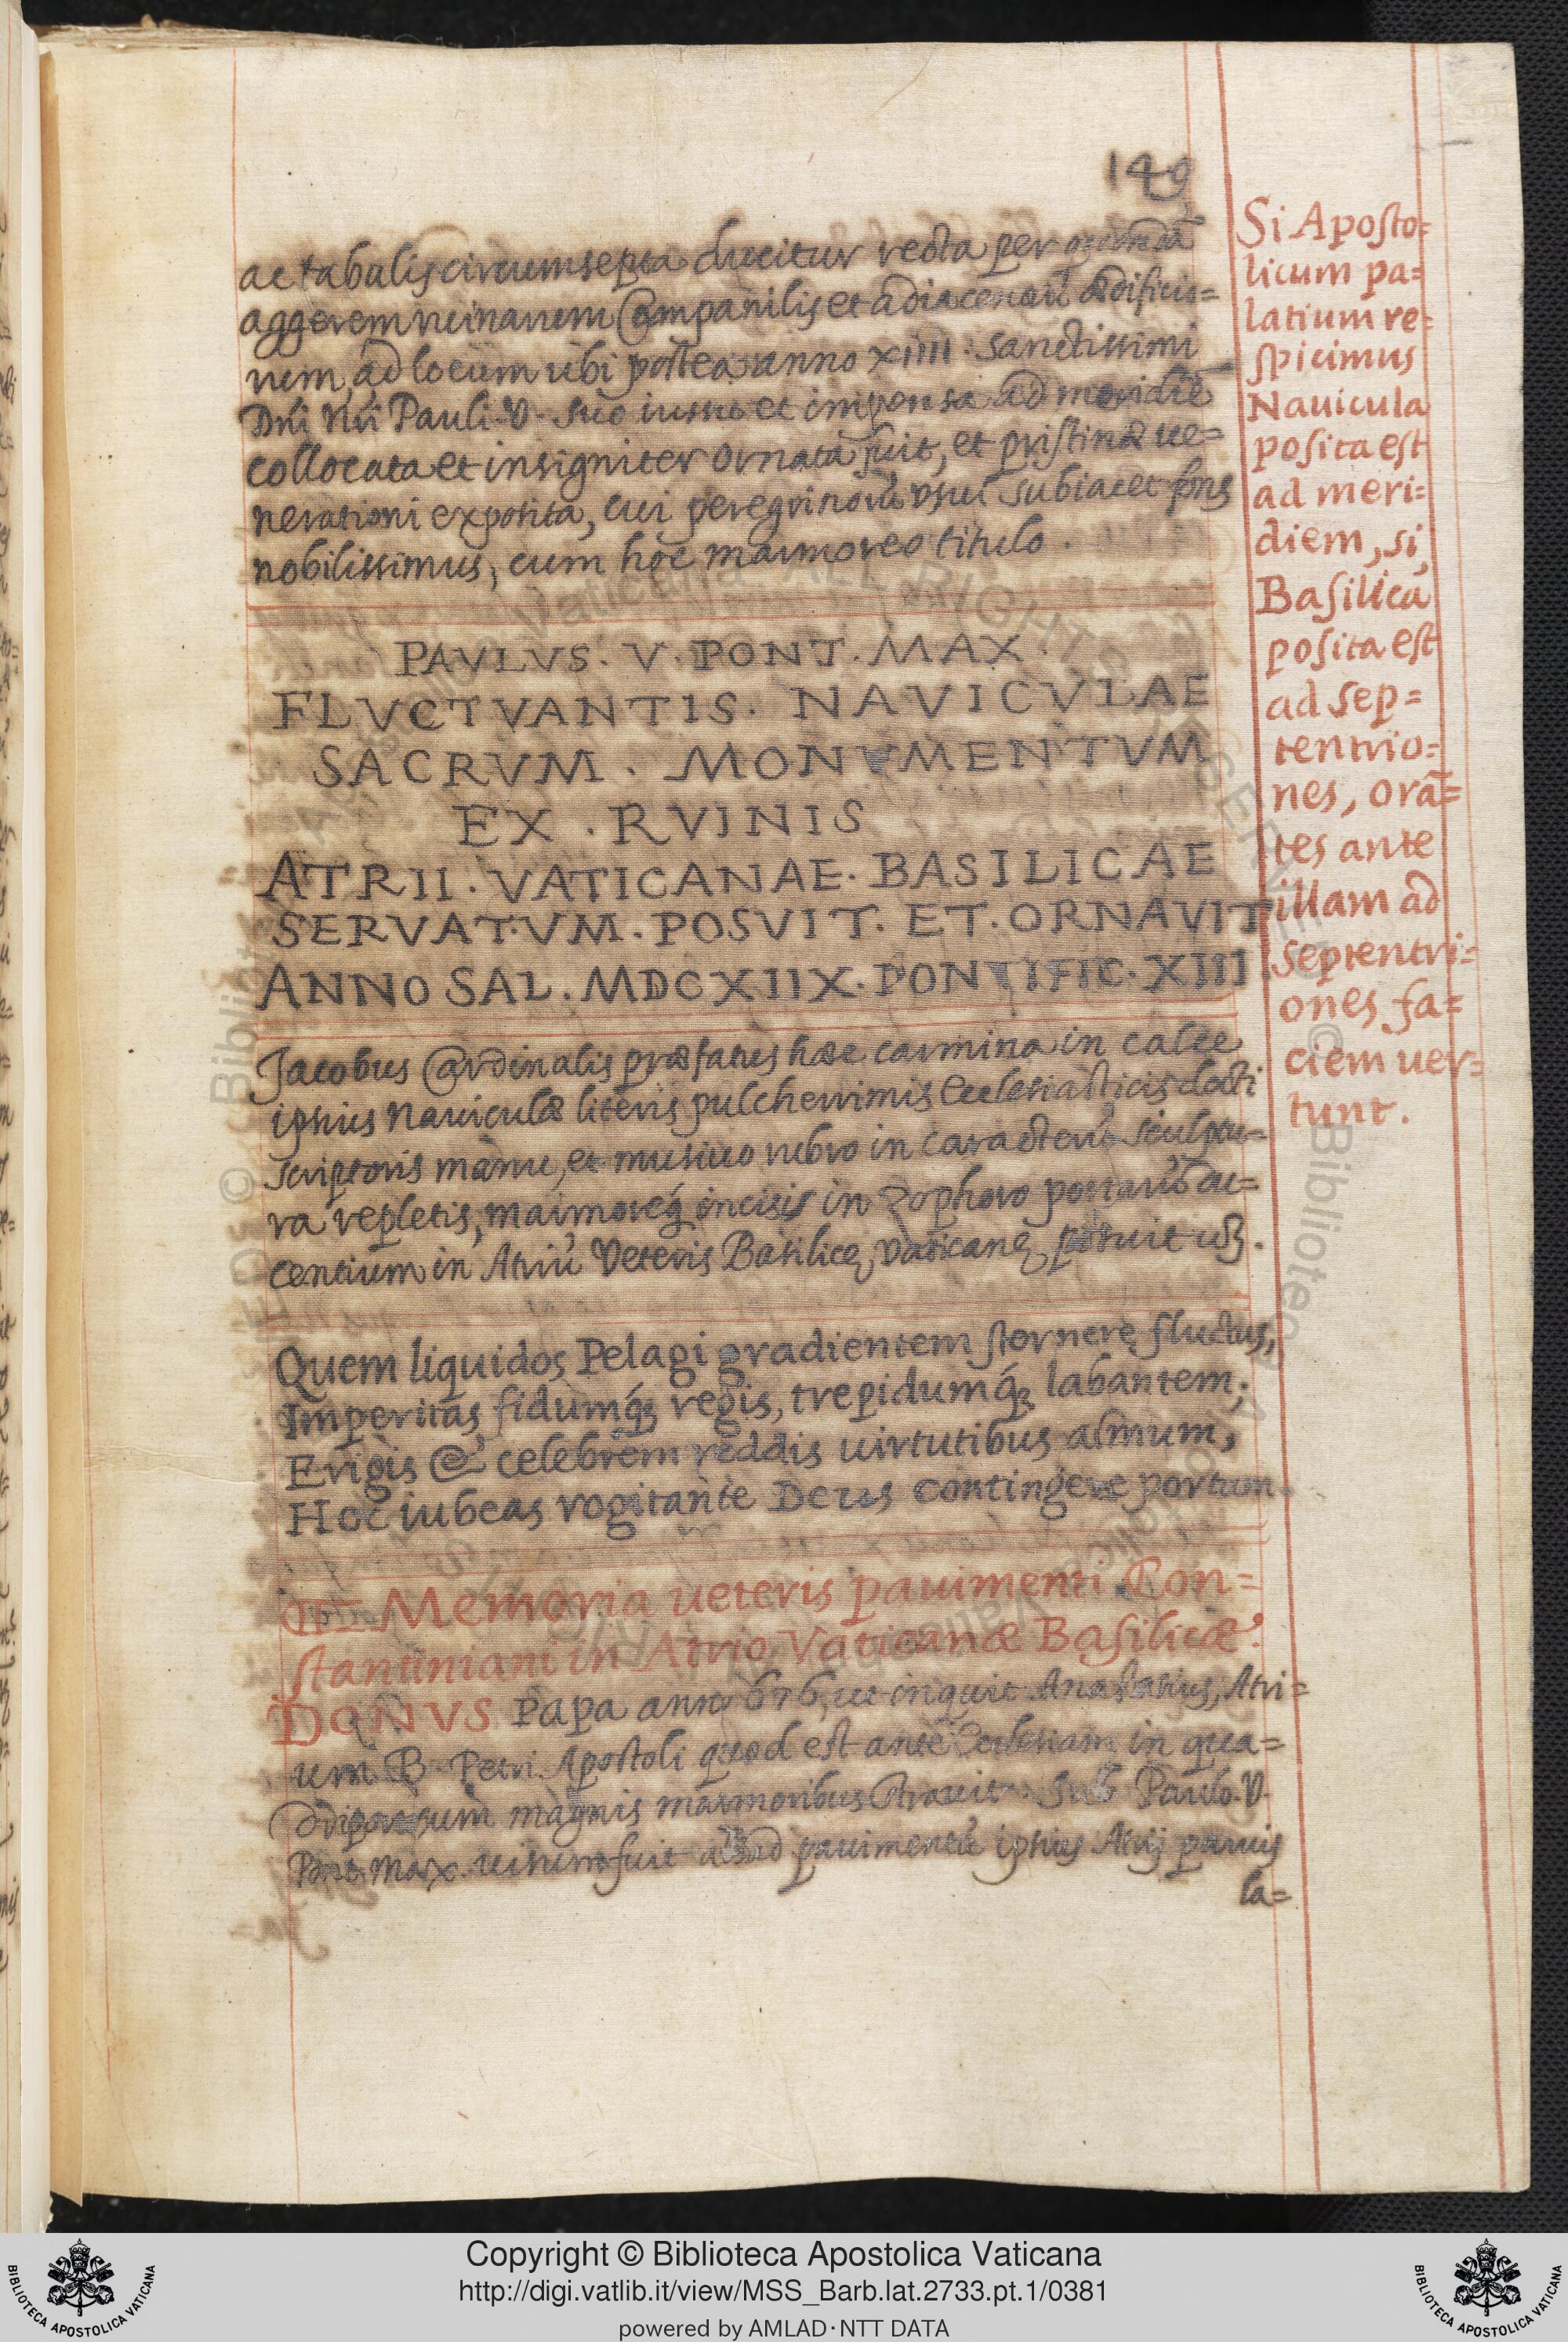 149
ac tabulis circumsepta ducitur recta per quendã
aggerem ruinarum Campanilis et adiacentiũ ædificio=
rum, ad locum ubi postea anno XIIII. Sanctissimi
Dñi Nri Pauli V. suo iussu et impensa ad meridiẽ
collocata et insigniter ornata fuit, et pristinæ ue=
nerationi exposita, cui peregrinorũ usui subiacet fons
nobilissimus, cum hoc marmoreo titulo.
PAVLVS. V. PONT. MAX.
FLVCTVANTIS. NAVICVLAE
SACRVM. MONVMENTVM
EX. RVINIS
ATRII. VATICANAE. BASILICAE
SERVATVM. POSVIT. ET. ORNAVIT
ANNO SAL. MDCXIIX. PONTIFIC. XIII
Jacobus Cardinalis præfatus hæc carmina in calce
ipsius Nauiculæ literis pulcherrimis Ecclesiasticis docti
scriptoris manu, et musiuo rubro in caracterũ sculptu=
ra repletis, marmoreq́ incisis in Zophoro portarũ du=
centium in Atriũ Veteris Basilicę Vaticanę posuit uȝ.
Quem liquidos Pelagi gradientem sternere fluctus,
Imperitas, fidumq́ȝ regis, trepidumq́ȝ labantem;
Erigis & celebrem reddis uirtutibus almum,
Hoc iubeas rogitante Deus contingere portum.
Memoria ueteris pauimenti Con=
stantiniani in Atrio Vaticanæ Basilicæ.
DONVS Papa anno 676, ut inquit Anastasius, Atri=
um B. Petri Apostoli quod est ante Ecclesiam in qua=
driporticum magnis marmoribus strauit. Sub Paulo V.
Pont. Max. uisum fuit pauimentũ ipsius Atrij paruis
la=
Si Aposto=
licum pa=
latium re=
spicimus
Nauicula
posita est
ad meri=
diem, si
Basilicã
posita est
ad sep=
tentrio=
nes, orã=
tes ante
illam ad
septentri=
ones fa=
ciem uer=
tunt.
Copyright © Biblioteca Apostolica Vaticana
http://digi.vatlib.it/view/MSS_Barb.lat.2733.pt.1/0381
powered by AMLAD·NTT DATA
BIBLIOTECA APOSTOLICA VATICANA
BIBLIOTECA APOSTOLICA VATICANA